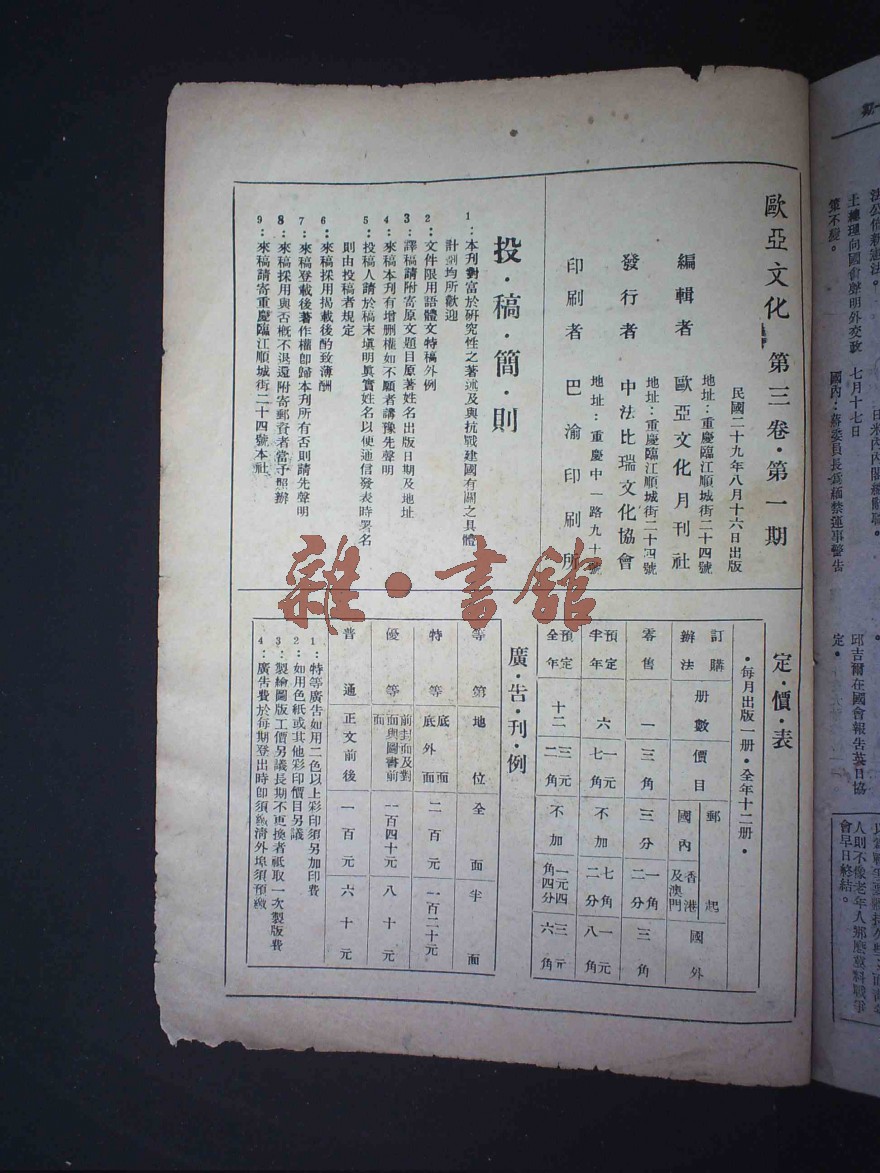 歐亞文化 第三卷·第一期
民國二十九年八月十六日出版
編輯者 歐亞文化月刊社
地址:重慶臨江順城街二十四號
發行者 中法比瑞文化協會
地址:重慶臨江順城街二十四號
印刷者 巴渝印刷所
地址:重慶中一路九十號
投·稿·簡·則
1:本刊對富於研究性之著述及與抗戰建國有關之具體
計劃均所歡迎
2:文件限用語體文特稿外例
3:譯稿請附寄原文題目原著姓名出版日期及地址
4:來稿本刊有增删權如不願者請豫先聲明
5:投稿人請於稿末填明眞實姓名以便通信發表時署名
則由投稿者規定
6:來稿採用揭載後酌致薄酬
7:來稿登載後著作權卽歸本刊所有否則請先聲明
8:來稿採用與否概不退還附寄郵資者當予照辦
9:來稿請寄重慶臨江順城街二十四號本社
定·價·表
·每月出版一册·全年十二册·
訂購辦法 册數 價目 郵起 國內 香港及澳門 國外
零售 一 三角 三分 一角二分 三角
預定半年 六 一元七角 不加 七角二分 一元八角
預定全年 十二 三元二角 不加 一元四角四分 三元六角
廣·告·刊·例
等第 地位 全面 半面
特等 底外面 底面 二百元 一百二十元
優等 前封面及對面與圖書前面 一百四十元 八十元
普通 正文前後 一百元 六十元
1:特等廣告如用二色以上彩印須另加印費
2:如用色紙或其他彩印價目另議
3:製繪圖版工價另議長期不更換者祇取一次製版費
4:廣告費於每期登出時卽須繳清外埠須預繳
雜·書館
法公佈新憲法。
土總理向國會聲明外交政
策不變。
七月十七日
國內:蔣委員長爲緬禁運事警告
邱吉爾在國會報告英日協
定。
人則不像老年人那麽意料戰爭
會早日終結。